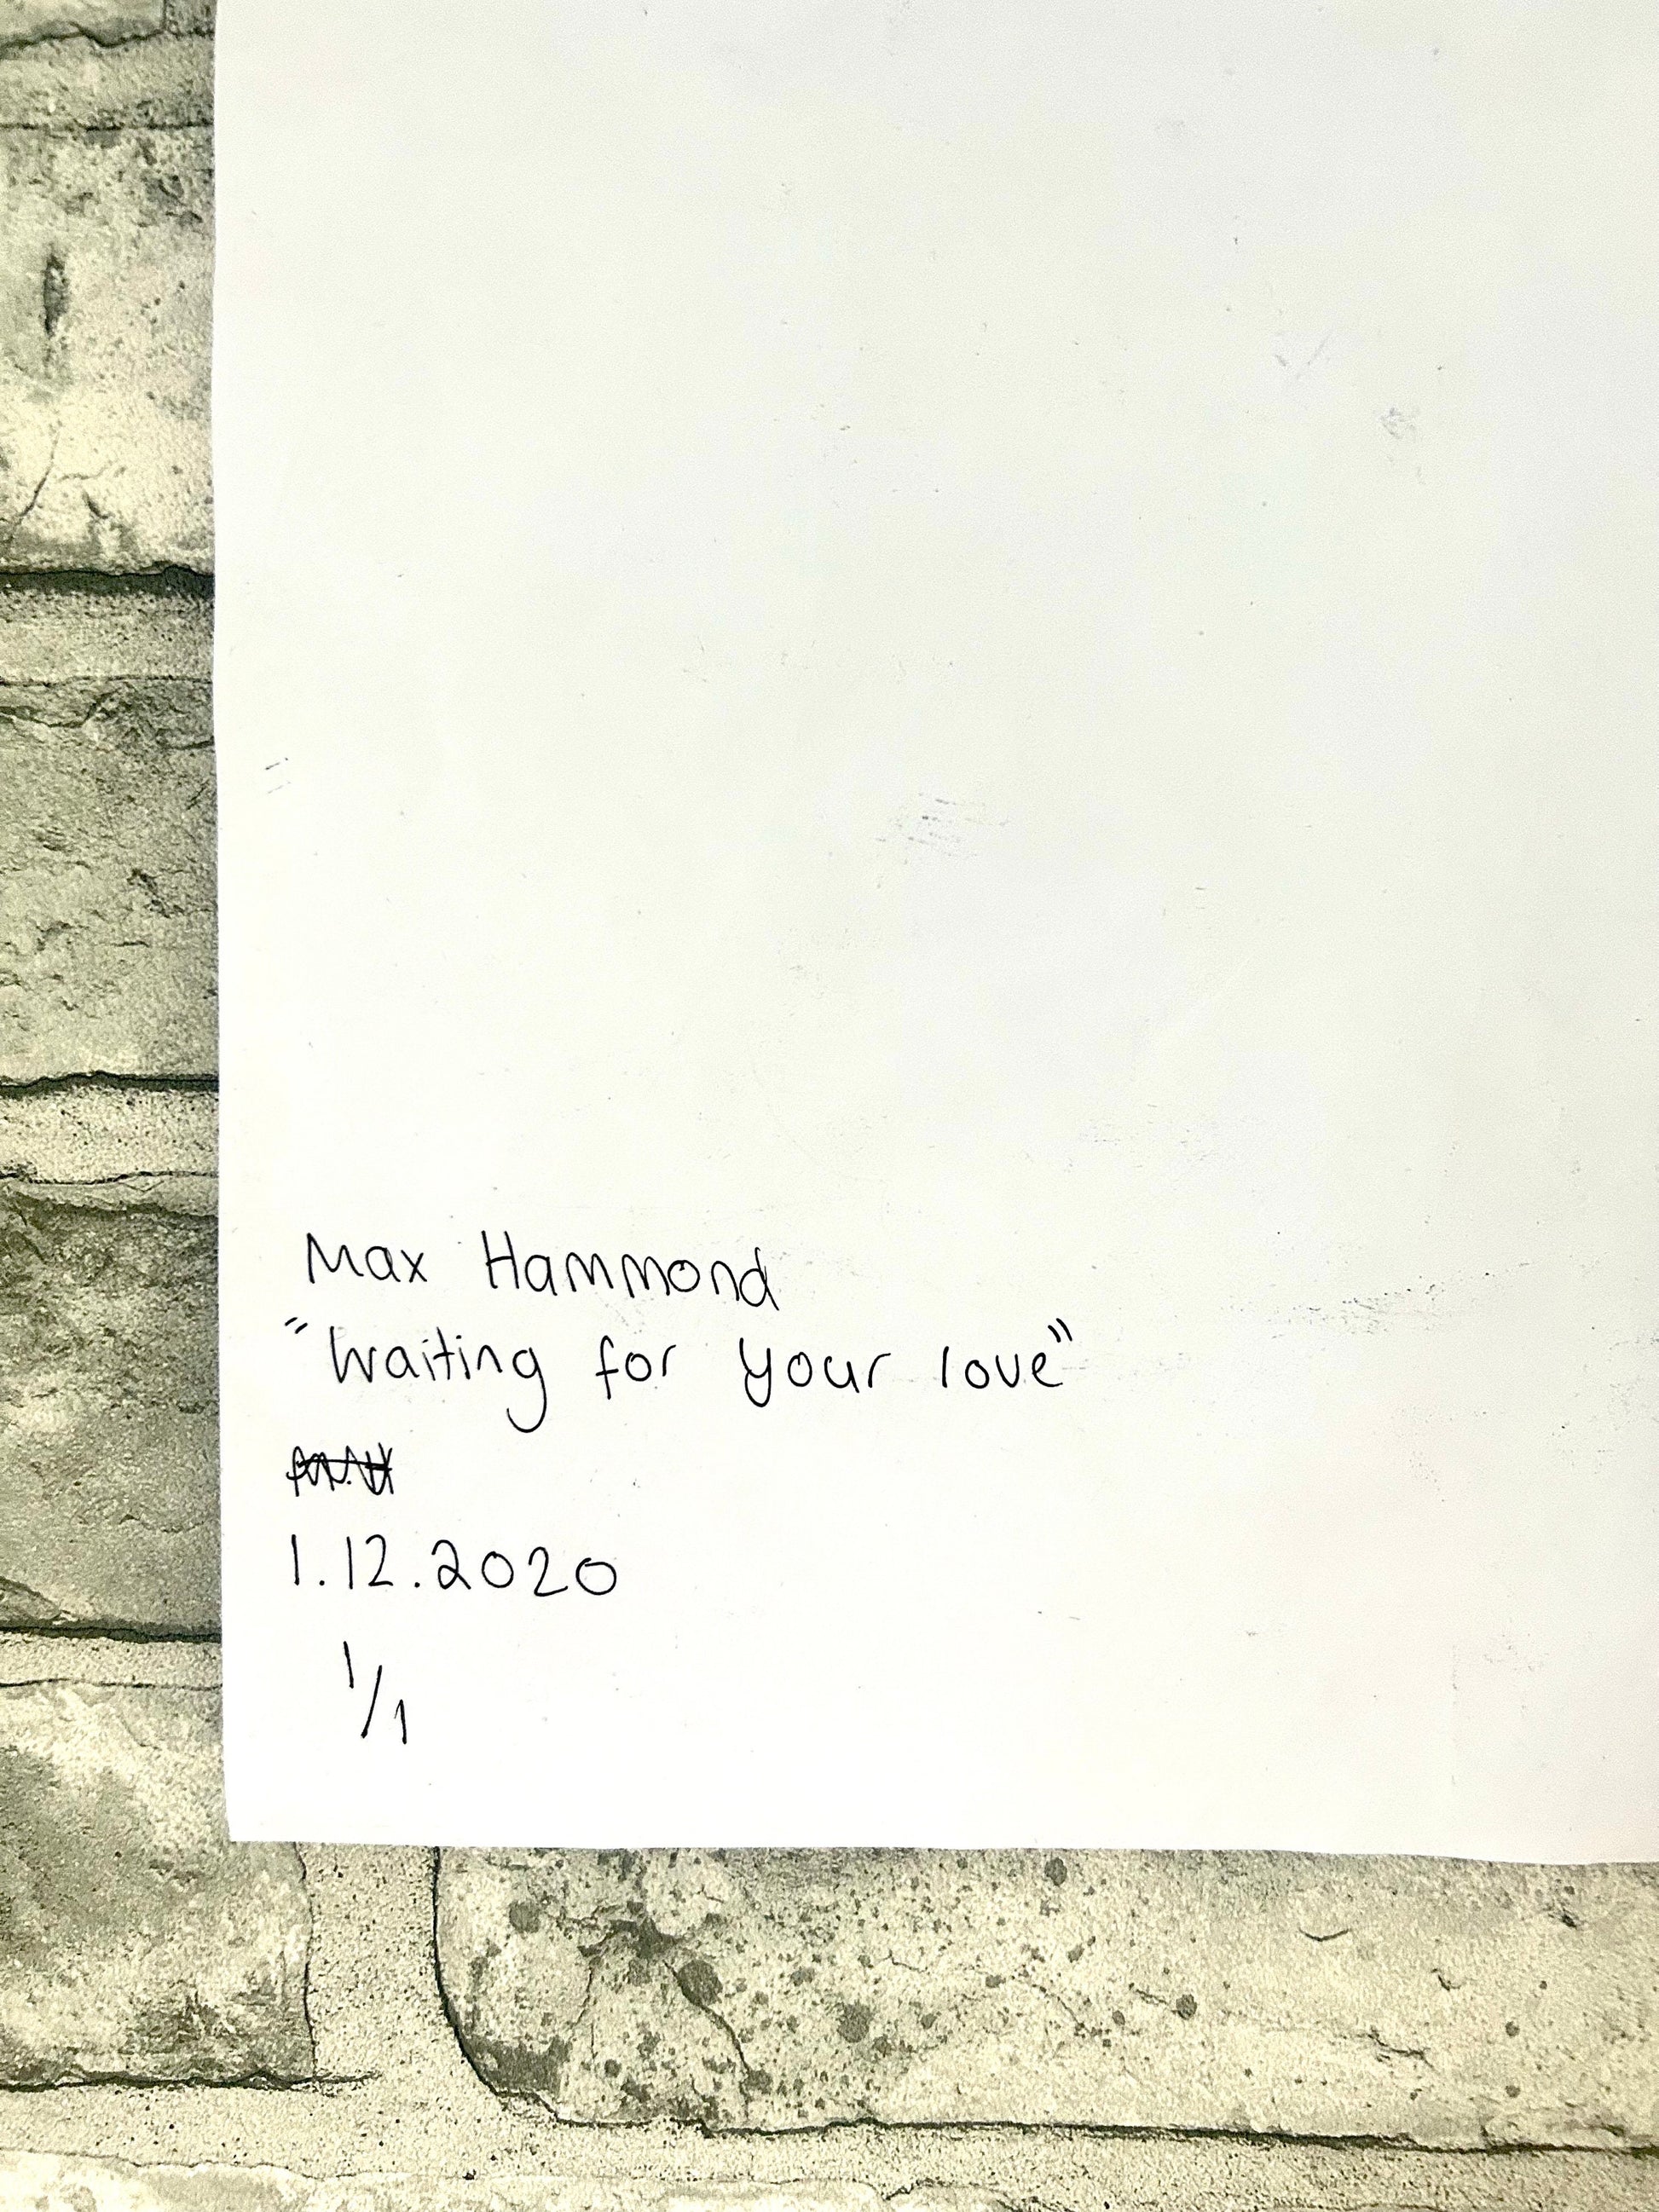 Max Hammond
"Waiting for your love"
1.12.2020
1/1